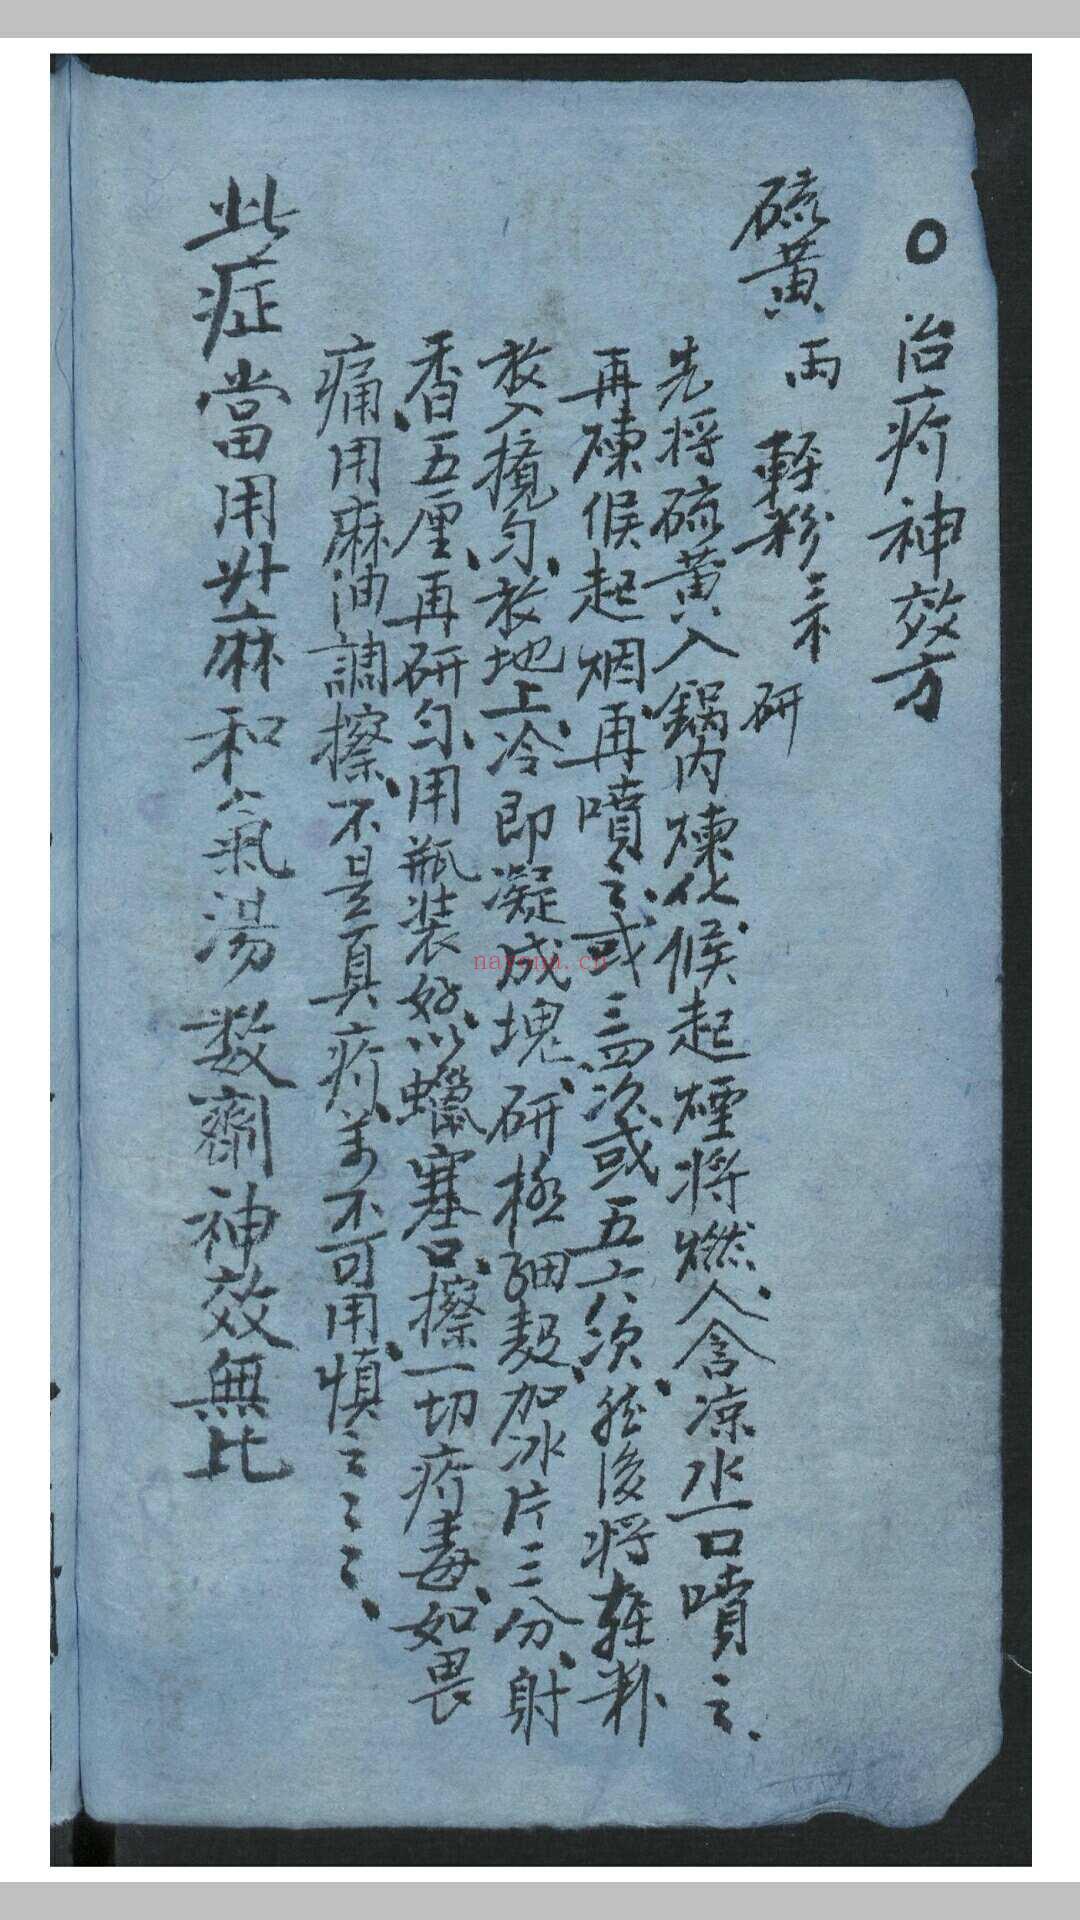 〇 治疥神效方
硫黃 兩 輕粉 三禾 研
先將硫黃入鍋內煉化候起煙將燃人含涼水一口噴之
再煉候起烟再噴之或三四次或五六次然後將輕粉
放入攪勻放地上冷即凝成塊研極細麪加冰片三分射
香五厘再研勻用瓶装好以蠟塞口擦一切疥毒如畏
痛用麻油調擦不是真疥萬不可用慎之之之
此症當用升麻和氣湯數齊神效無比
nayona.cn